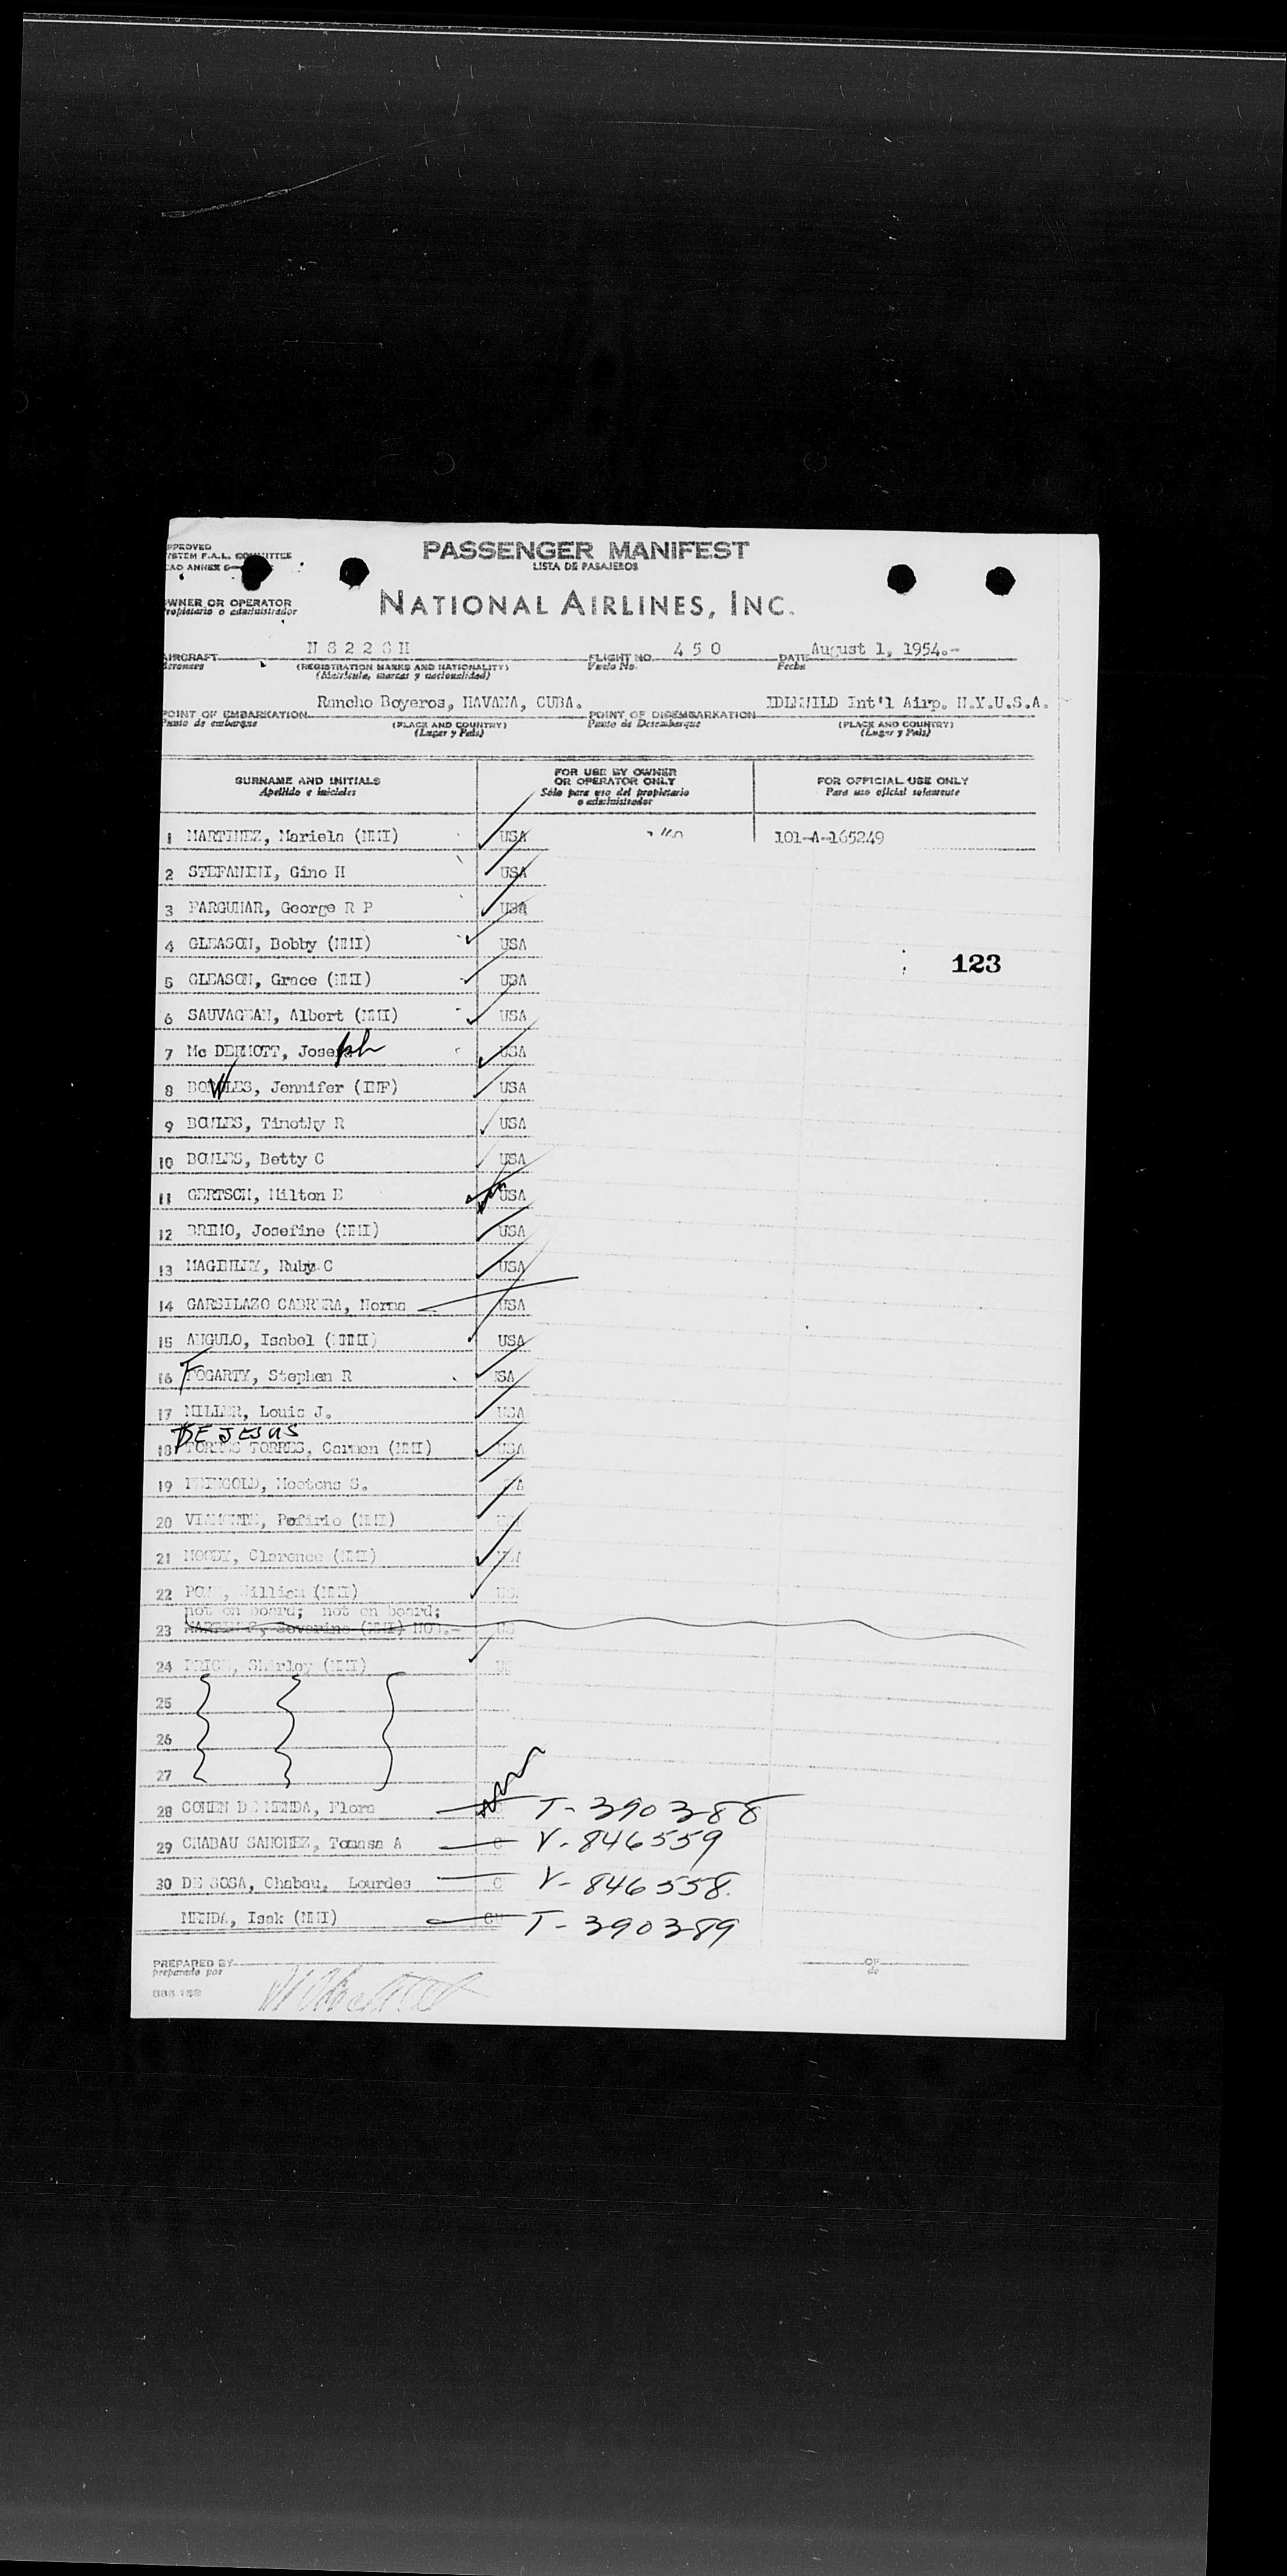 PPROVED
YSTEM F.A.L. COMMITTEE
CAO ANNEX
PASSENGER MANIFEST
LISTA DE PASAJEROS
WNER OR OPERATOR
ropietario o administrador
NATIONAL AIRLINES, INC.
AIRCRAFT
Aeronave
N 8 2 2 6 H
(REGISTRATION MARKS AND NATIONALITY)
(Matrícula, marcas y nacionalidad)
FLIGHT NO. 4 5 0
Vuelo No.
DATE August 1, 1954.-
Fecha
POINT OF EMBARKATION Rancho Boyeros, HAVANA, CUBA.
Punto de embarque
(PLACE AND COUNTRY)
(Lugar y País)
POINT OF DISEMBARKATION IDLEWILD Int'l Airp. N.Y.U.S.A.
Punto de Desembarque
(PLACE AND COUNTRY)
(Lugar y País)
SURNAME AND INITIALS
Apellido e iniciales
FOR USE BY OWNER
OR OPERATOR ONLY
Sólo para uso del propietario
o administrador
FOR OFFICIAL USE ONLY
Para uso oficial solamente
1 MARTINEZ, Mariela (NMI) USA 101-A-165249
2 STEFANINI, Gino H USA
3 FARQUHAR, George R P USA
4 GLEASON, Bobby (NMI) USA
123
5 GLEASON, Grace (NMI) USA
6 SAUVAGEAN, Albert (NMI) USA
7 Mc DERMOTT, Joseph USA
8 BOWLES, Jennifer (INF) USA
9 BOWLES, Timothy R USA
10 BOWLES, Betty C USA
11 GERTSCH, Milton E USA
12 BRIMO, Josefine (NMI) USA
13 MAGINLEY, Ruby C USA
14 GARSILAZO CABRERA, Norma USA
15 ANGULO, Isabel (NMI) USA
16 FOGARTY, Stephen R USA
17 MILLER, Louis J. USA
DE JESUS
18 TORRES TORRES, Carmen (NMI) USA
19 S.
20 Pofirio (NMI)
21 MOODY, Clarence (NMI)
22 William (NMI)
not on board; not on board;
23 Severino (NMI) NOT.- US
24 PRICE, Shirley (NMI) US
25
26
27
28 COHEN DE MENDA, Flora T-390388
29 CHABAU SANCHEZ, Tomasa A C V-846559
30 DE SOSA, Chabau, Lourdes C V-846558.
MENDA, Isak (NMI) CU T-390389
PREPARED BY
preparado por
OF
de